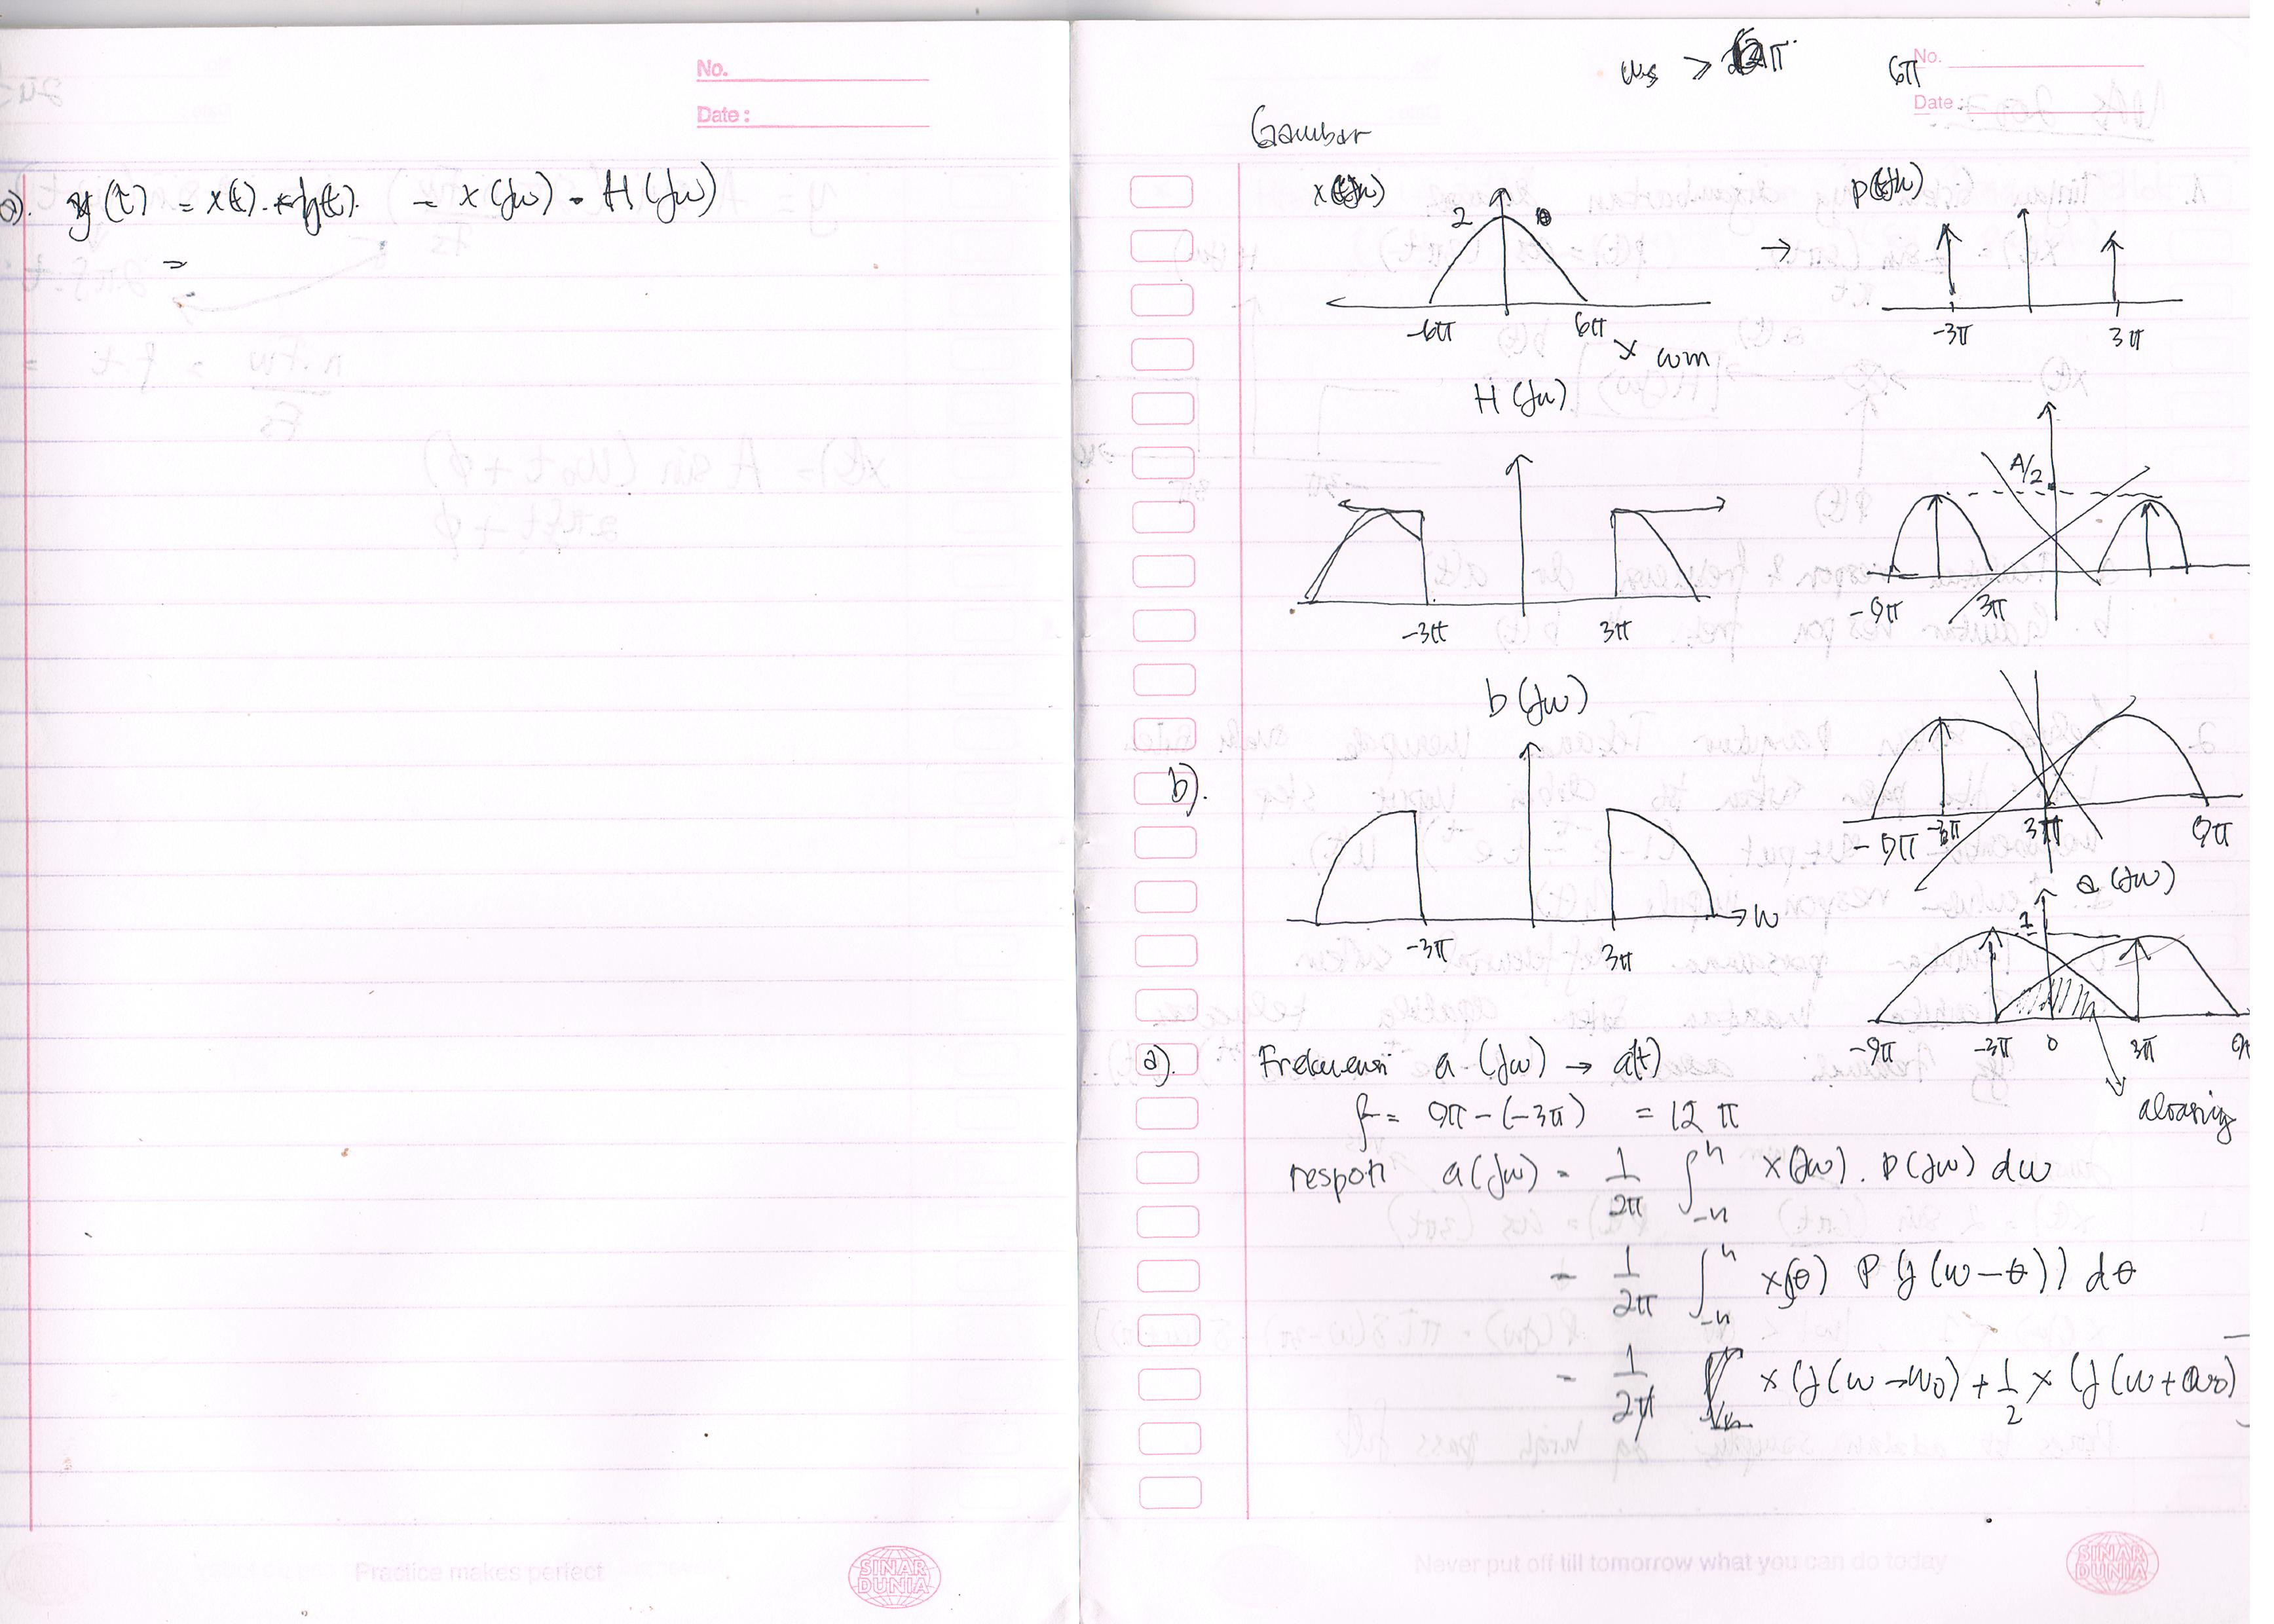 No.
Date :
a). y(t) = x(t) * h(t). = x(jω) . H(jω)
=
Practice makes perfect
SINAR DUNIA
ωs > 12π.
6π
No.
Date :
Gambar
x(jω)
2
-6π 6π ωm
→
P(jω)
-3π 3π
H(jω)
-3π 3π
A/2
-9π 3π
b).
b(jω)
-3π 3π → ω
-9π -3π 3π 9π
a(jω)
1
-9π -3π 0 3π
aloasing
a). Frekuensi a (jω) → a(t)
f = 9π - (-3π) = 12 π
respon a(jω) = 1/2π ∫ x(jω) . P(jω) dω
= 1/2π ∫ x(jθ) P(j(ω-θ)) dθ
= 1/2π x(j(ω-ω0) + 1/2 x (j(ω+ω0)
Never put off till tomorrow what you can do today
SINAR DUNIA